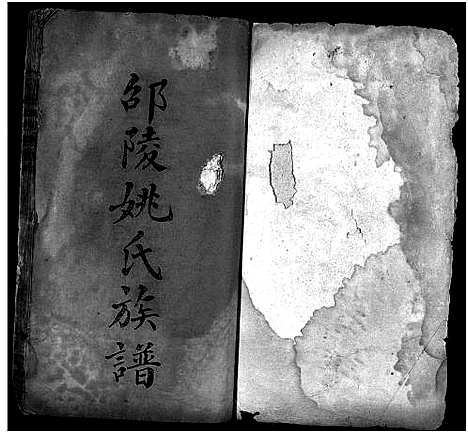 邵陵姚氏族譜